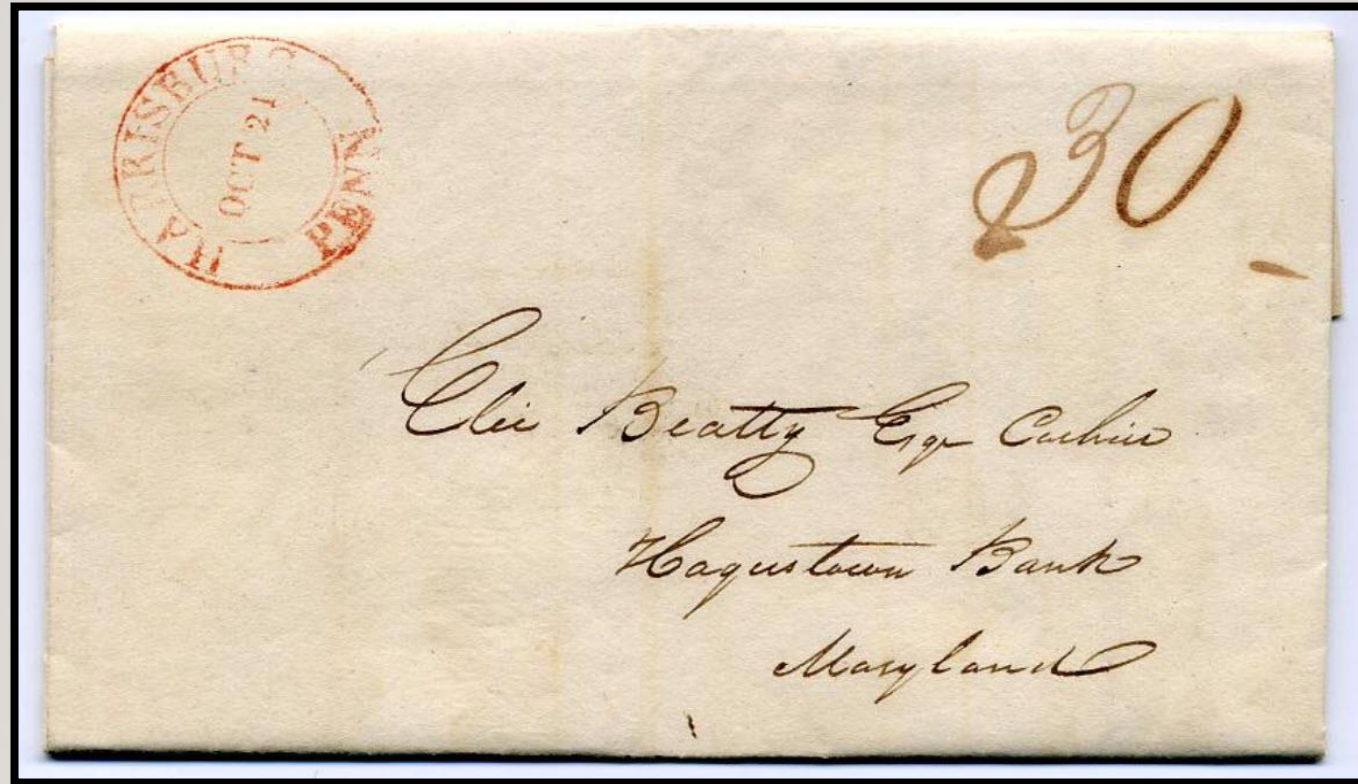 HARRISBURG PENN
OCT 21
30
Elie Beatty Esqr Cashier
Hagerstown Bank
Maryland